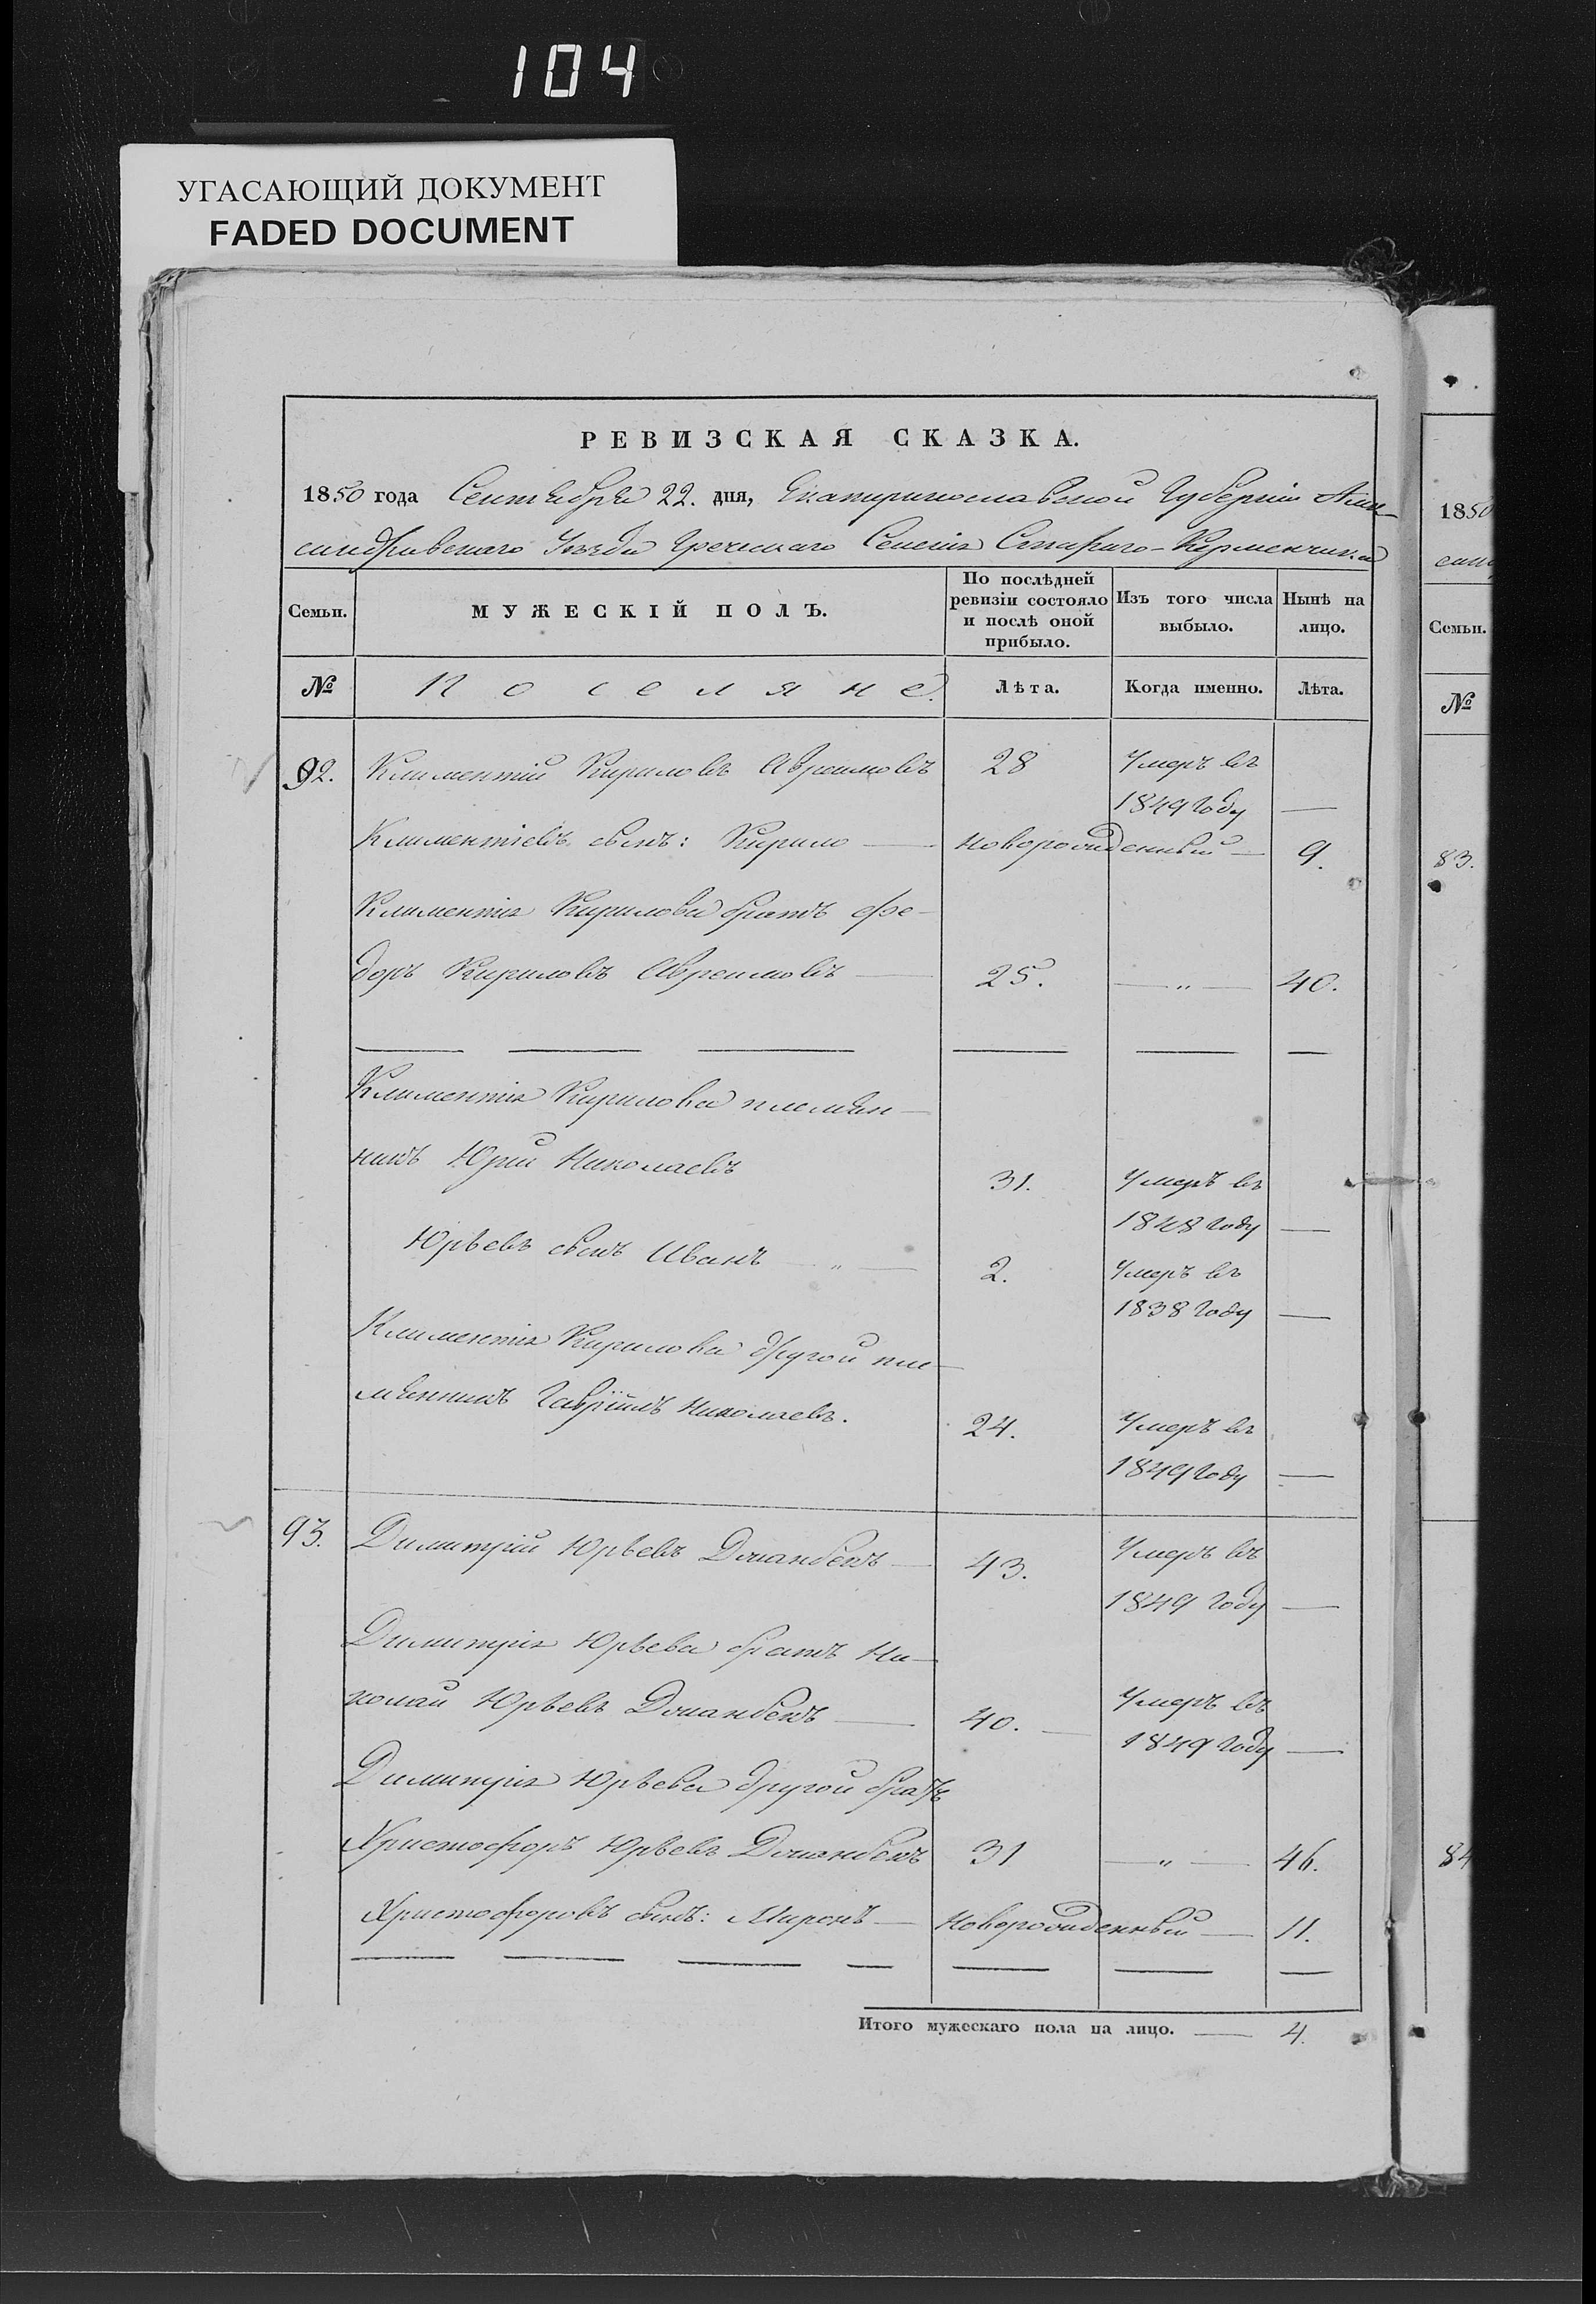 104
УГАСАЮЩИЙ ДОКУМЕНТ
FADED DOCUMENT
РЕВИЗСКАЯ СКАЗКА.
1850 года Сентября 22. дня, Екатеринославской Губерніи Алек-
сандровскаго Уѣзда Греческаго Селенія Стараго-Керменчика
Семьи.
МУЖЕСКІЙ ПОЛЪ.
По послѣдней
ревизіи состояло
и послѣ оной
прибыло.
Изъ того числа
выбыло.
Нынѣ на
лицо.
№ Поселяне. Лѣта. Когда именно. Лѣта.
92. Климентій Кириловъ Авраимовъ 28 Умеръ въ
1849 Году —
Климентіевъ сынъ: Кирило — Новорожденный — 9.
Климентія Кирилова братъ Фе-
доръ Кириловъ Авраимовъ — 25. — " — 40.
Климентія Кирилова племян-
никъ Юрий Николаевъ 31. Умеръ въ
1848 Году —
Юрьевъ сынъ Иванъ — " — 2. Умеръ въ
1838 Году —
Климентія Кирилова другой пле-
мянникъ Гаврїилъ Николаевъ. 24. Умеръ въ
1849 Году —
93. Димитрій Юрьевъ 43. Умеръ въ
1849 Году —
Димитрія Юрьева братъ Ни-
колай Юрьевъ — 40. — Умеръ въ
1849 Году —
Димитрія Юрьева другой братъ
Христофоръ Юрьевъ 31 — " — 46.
Христофоровъ сынъ: Миронъ — Новорожденный — 11.
Итого мужескаго пола на лицо. — 4.
1850
Семьи.
№
83.
84